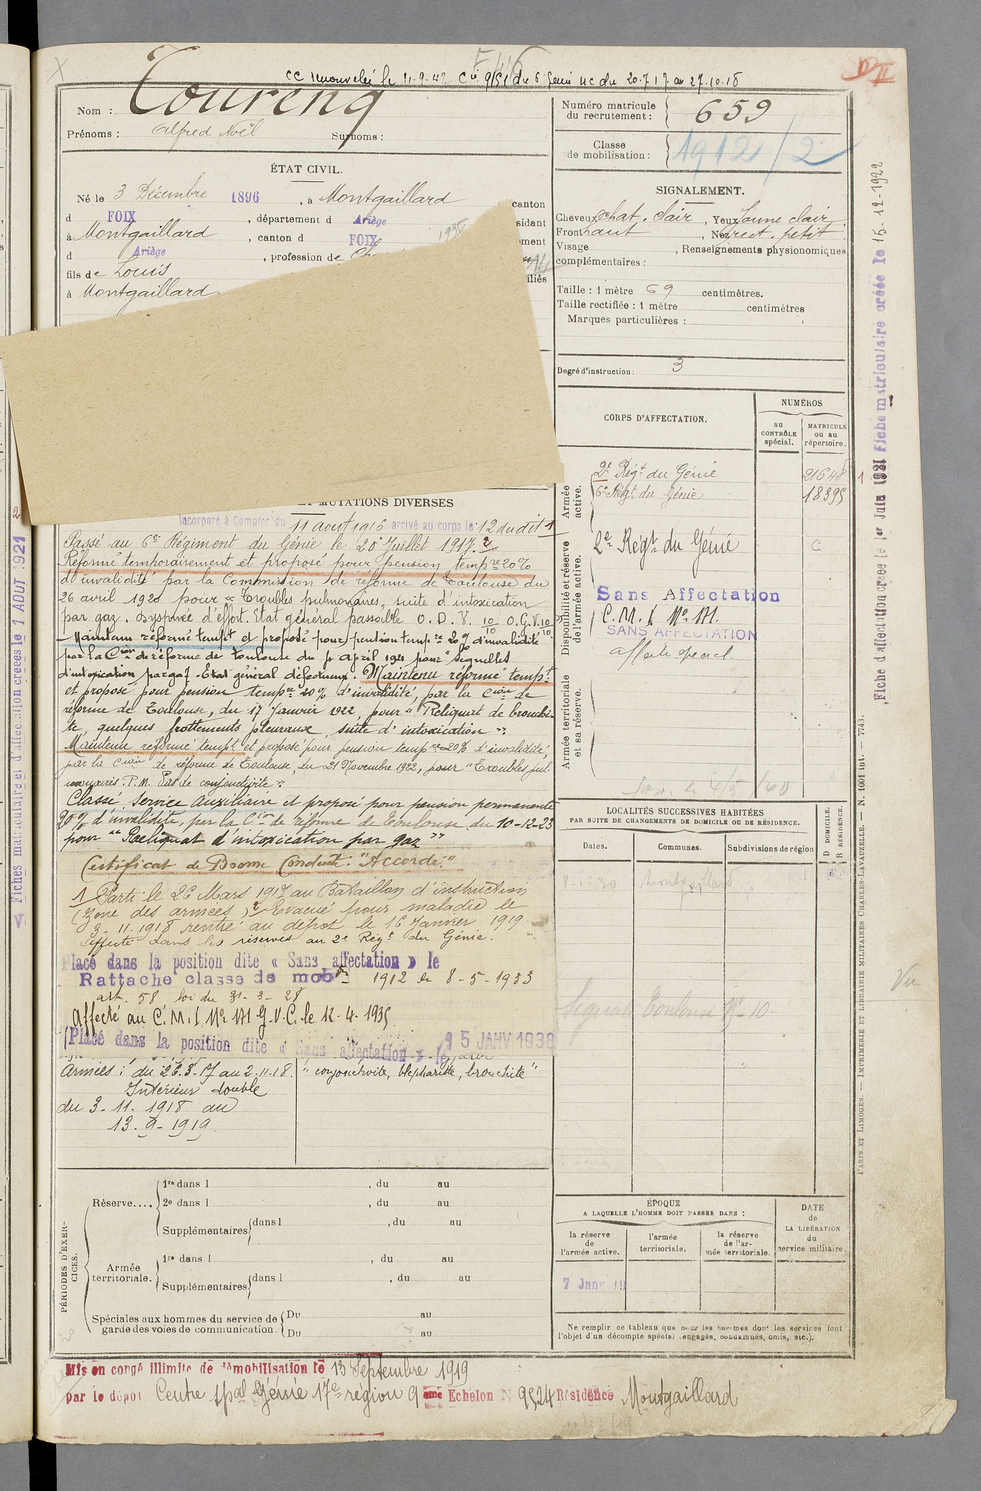 Toureng
659
Nom :
Prénoms : Alfred Noël Surnoms :
Numéro matricule du recrutement :
Classe de mobilisation : 1912/2
ÉTAT CIVIL.
Né le 3 Décembre 1896, à Montgaillard canton
d FOIX, département d Ariège
à Montgaillard, canton d FOIX
d Ariège, profession de
fils de Louis
à Montgaillard
SIGNALEMENT.
Cheveux chat. clair, Yeux jaune clair
Front haut, Nez rect. petit
Visage , Renseignements physionomiques
complémentaires :
Taille : 1 mètre 69 centimètres.
Taille rectifiée : 1 mètre centimètres
Marques particulières :
Degré d'instruction : 3
CORPS D'AFFECTATION.
NUMÉROS
au CONTRÔLE spécial.
MATRICULE ou au répertoire.
Armée active.
2e Régt du Génie
6e Régt du Génie 18395
Disponibilité et réserve de l'armée active.
2e Régt du Génie C
Sans Affectation
SANS AFFECTATION
Armée territoriale et sa réserve.
MUTATIONS DIVERSES
Incorporé à Compter du 11 aout 1916 arrivé au corps le 12 du dit 1
Passé au 6e Régiment du Génie le 20 Juillet 1917. 2
Réformé temporairement et proposé pour pension tempre 20%
d'invalidité par la Commission de réforme de Toulouse du
26 avril 1920 pour "Troubles pulmonaires, suite d'intoxication
par gaz. Dyspnée d'effort. Etat général passable O. D. V. 10/10 O.G.V. 10/10
Maintenu réformé tempt et proposé pour pension tempre 20% d'invalidité
par la Cion de réforme de Toulouse du avril 1921 pour "Séquelles
d'intoxication par gaz. Etat général défectueux. Maintenu réformé tempt
et proposé pour pension tempre 20% d'invalidité, par la Cion de
réforme de Toulouse, du 17 Janvier 1922, pour "Reliquat de bronchi-
te, quelques frottements pleuraux, suite d'intoxication"
Maintenu réformé tempt et proposé pour pension tempre 20% d'invalidité,
par la Cion de réforme de Toulouse, du 21 Novembre 1922, pour "Troubles pul-
monaires. P.M. Pas de conjonctivite"
Classé Service Auxiliaire et proposé pour pension permanente
20% d'invalidité, par la Cion de réforme de Toulouse du 10-12-23
pour "Reliquat d'intoxication par gaz"
Certificat de Bonne Conduite "Accordé"
1 Parti le 26 Mars 1917 au Bataillon d'instruction
(zone des armées) 2 Evacué pour maladie le
3-11-1918 rentré au dépôt le 16 Janvier 1919
Affecté dans les réserves au 2e Régt du Génie.
Placé dans la position dite « Sans affectation » le
Rattaché classe de mobon 1912 le 8-5-1933
art. 58 loi du 31-3-28
Affecté au C.M.I. No 171 G.V.C. le 12-4-1935
Placé dans la position dite « Sans affectation » le 15 JANV 1938
Armées : du 26.3.17 au 2.11.18. "conjonctivite, blépharite, bronchite"
Intérieur double
du 3-11-1918 au
13-9-1919
LOCALITÉS SUCCESSIVES HABITÉES
PAR SUITE DE CHANGEMENTS DE DOMICILE OU DE RÉSIDENCE.
Dates. Communes. Subdivisions de région
D DOMICILE. R RÉSIDENCE.
Montgaillard
Toulouse
PÉRIODES D'EXERCICES.
Réserve.... 1re dans l , du au
2e dans l , du au
Supplémentaires dans l , du au
Armée territoriale. 1re dans l , du au
Supplémentaires dans l , du au
Spéciales aux hommes du service de garde des voies de communication. Du au
Du au
ÉPOQUE
A LAQUELLE L'HOMME DOIT PASSER DANS :
la réserve de l'armée active.
l'armée territoriale.
la réserve de l'armée territoriale.
DATE de LA LIBÉRATION du service militaire
7 Janv 19
Ne remplir ce tableau que pour les hommes dont les services font
l'objet d'un décompte spécial (engagés, condamnés, omis, etc.).
Mis en congé illimité de démobilisation le 13 Septembre 1919
par le dépôt Centre spal Génie 17e région 9 eme Echelon N 9524 Résidence Montgaillard
Fiche d'affectation créée le 1er Juin 1921 Fiche matriculaire créée le 16.12.1922
PARIS ET LIMOGES. — IMPRIMERIE ET LIBRAIRIE MILITAIRES CHARLES-LAVAUZELLE. — N. 1001 int. — 7743.
Fiches matriculaire et d'affectation créées le 1 AOUT 1921
Vu